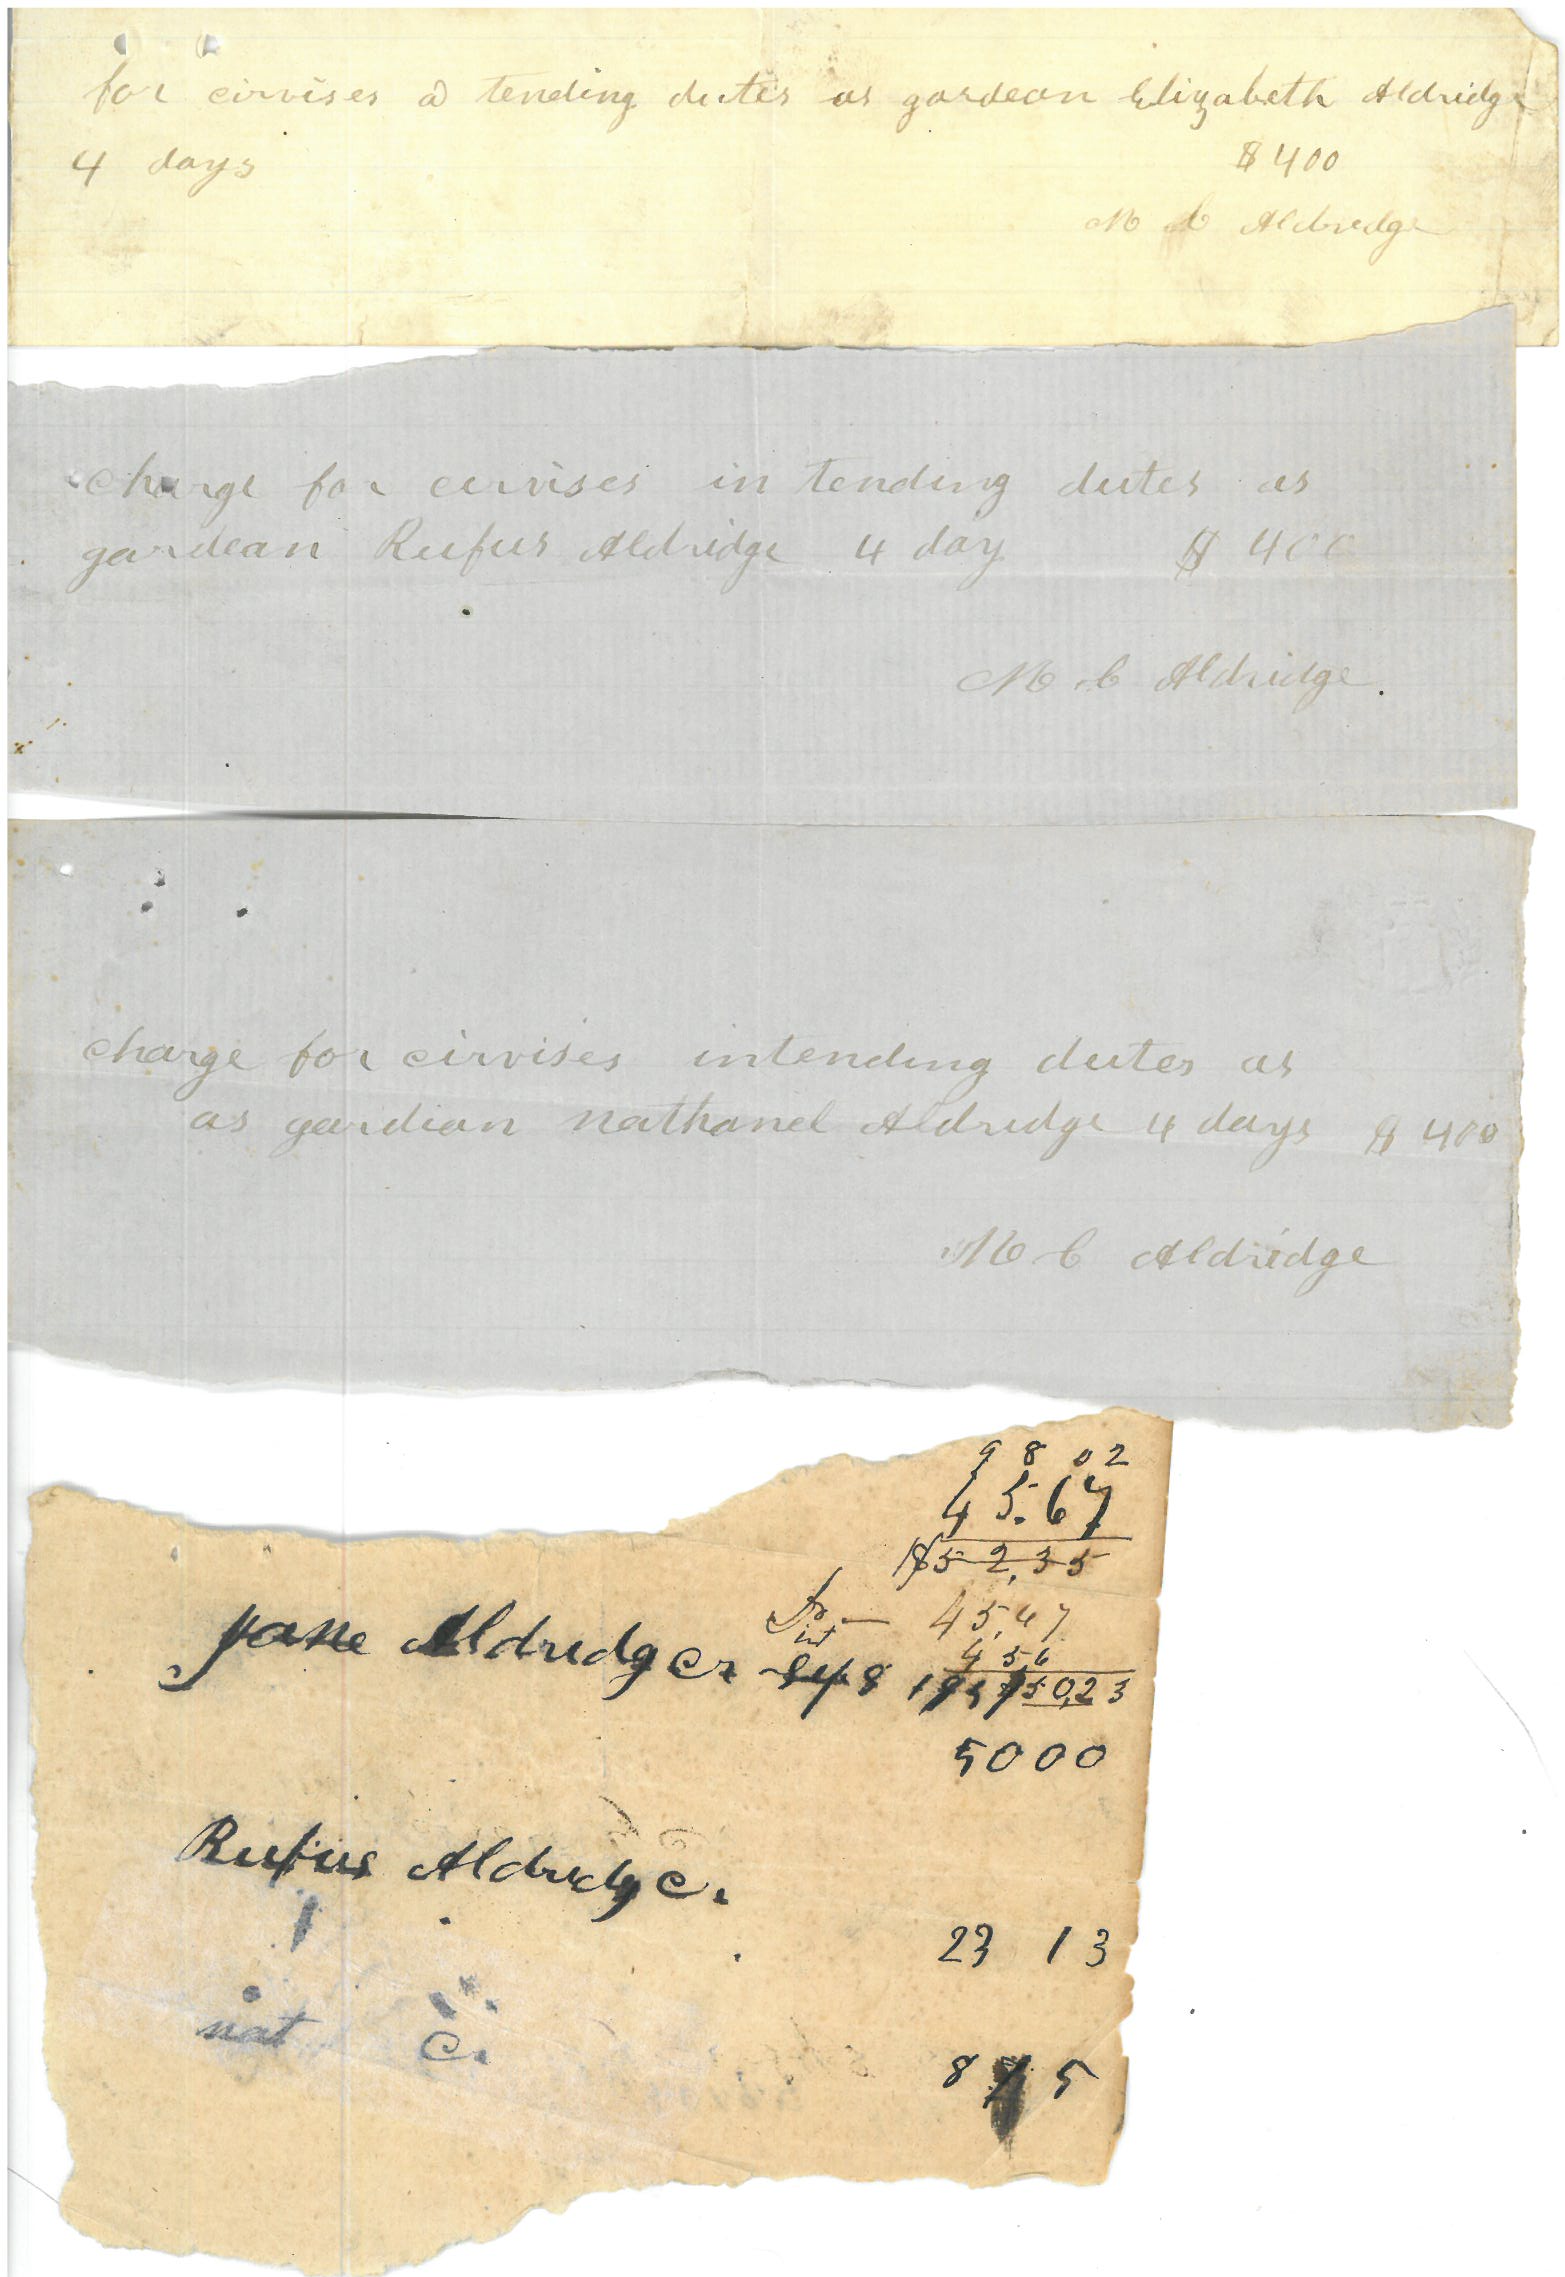 for cirvises a tending dutes as gardean Elizabeth Aldridge
4 days $400
M C Aldredge
charge for cirvises in tending dutes as
gardean Rufus Aldridge 4 day $ 400
M C Aldridge.
charge for cirvises intending dutes as
as gardian nathanel Aldredge 4 days $ 400
M C Aldridge
98 02
45.67
52,35
45,67
Int
4 5,6
Jane Aldredg Cr
50,23
5000
Rufus Aldredg C.
23 13
nat C.
8 5